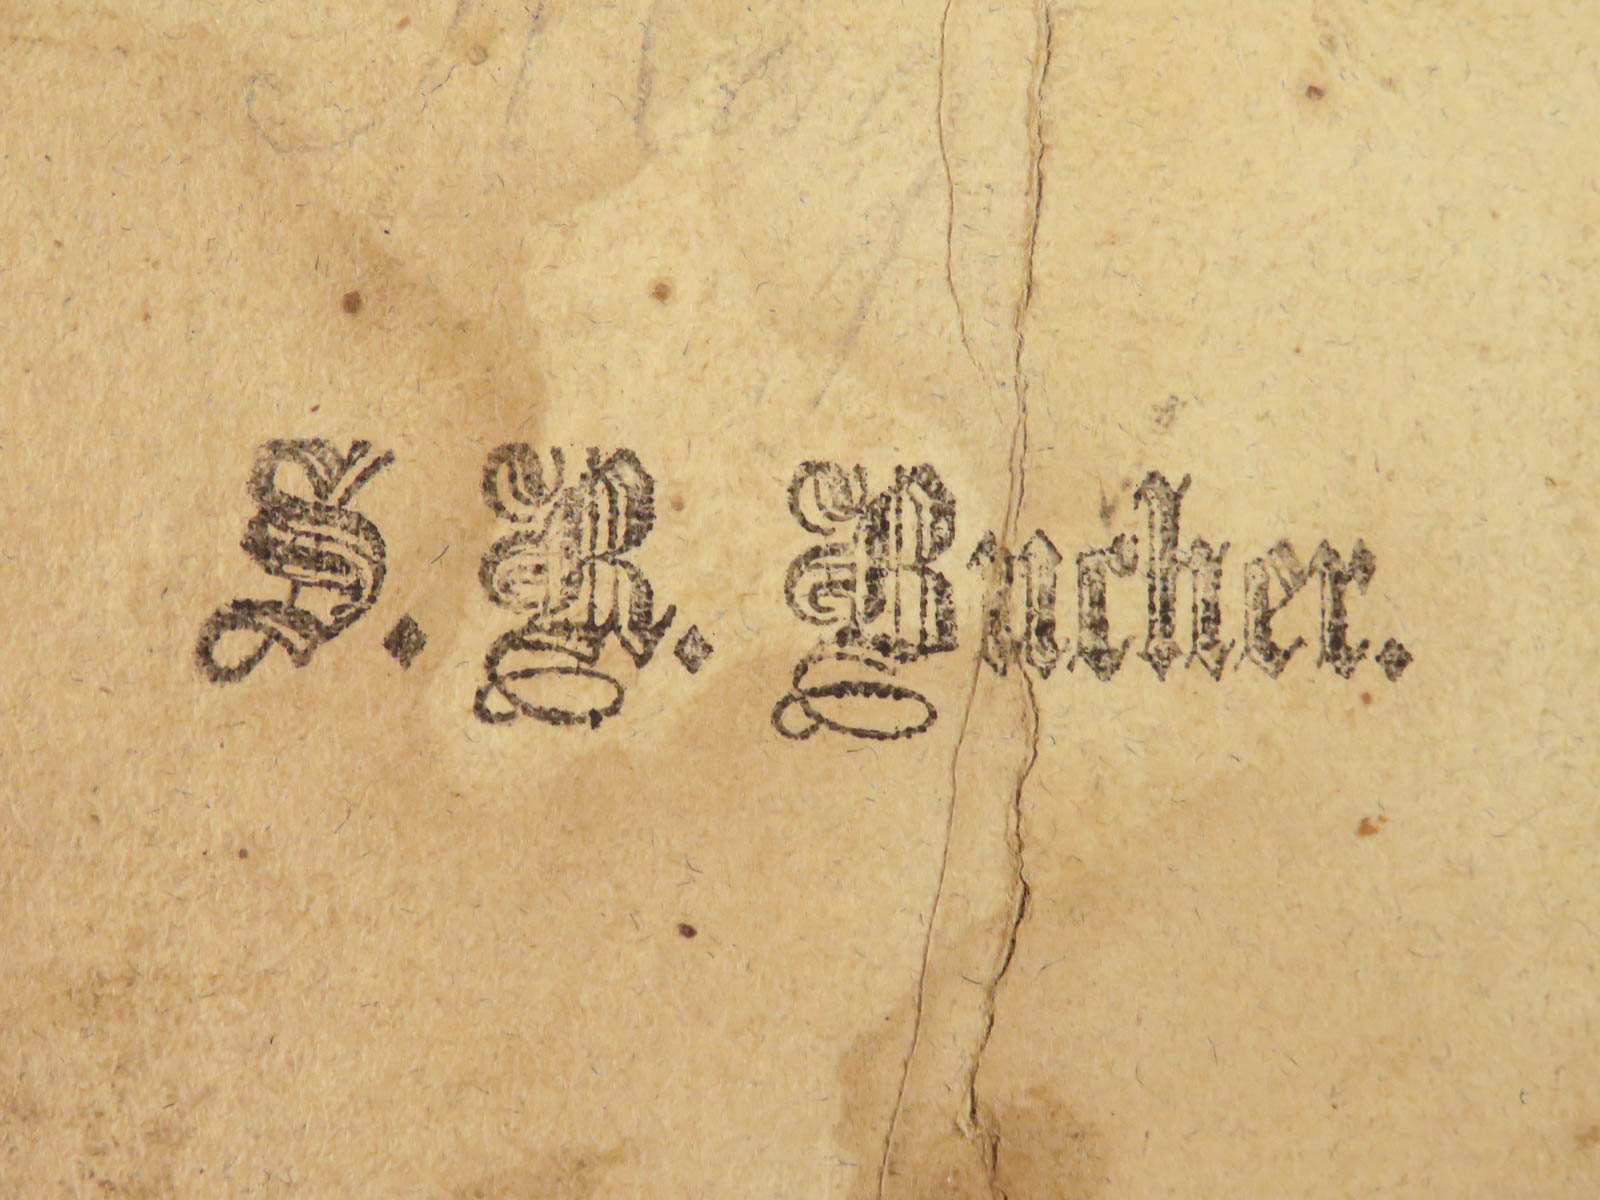 S. R. Bucher.